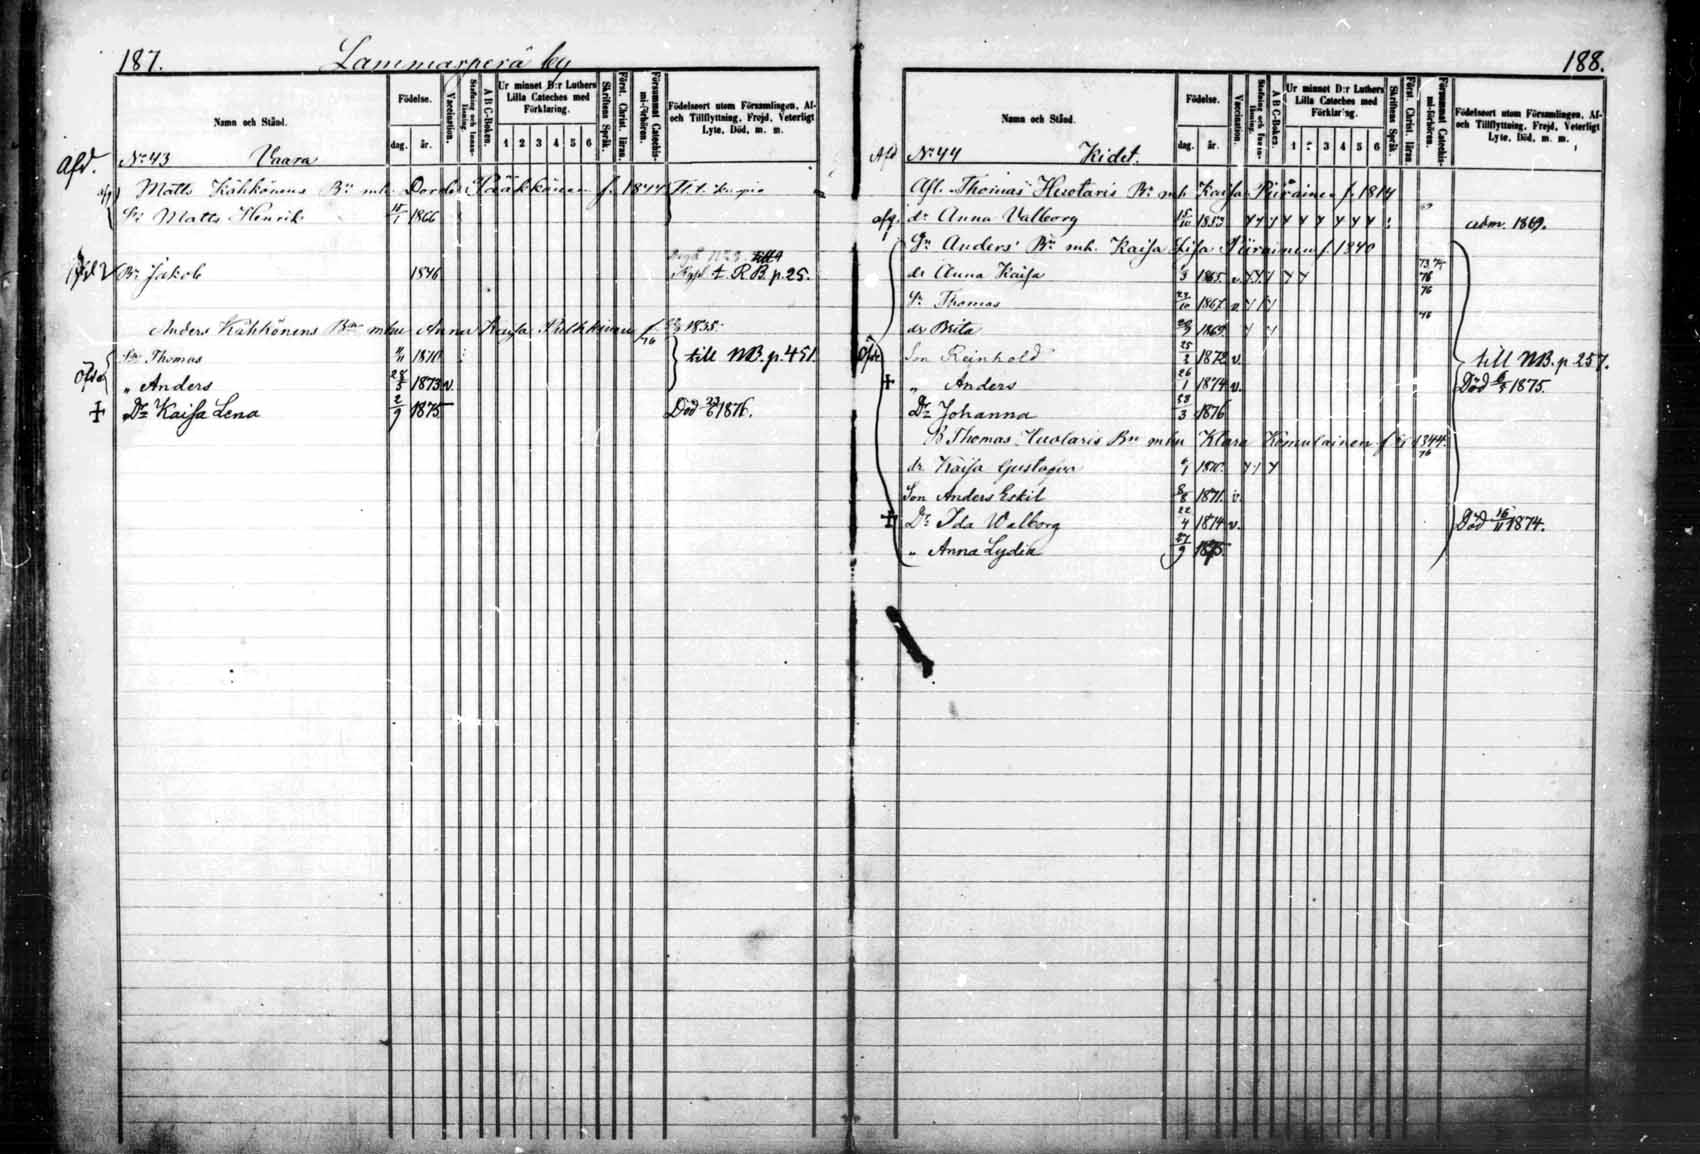 187. Lammasperä by
Namn och Stånd.
Födelse.
dag. år.
Vaccination.
Stafning och Innanläsning.
A B C-Boken.
Ur minnet D:r Luthers Lilla Cateches med Förklaring.
1 2 3 4 5 6
Skriftens Språk.
Först. Christ. läran.
Försummat Catechismi-förhören.
Födelseort utom Församlingen, Af- och Tillflyttning, Frejd, Veterligt Lyte, Död, m. m.
Afd. No 43 Vaara
Matts Kähkönens Bn mh. Dordi Pääkkönen f. 1844
Sn Matts Henrik 1866
Bn Jakob 1846 R.B. p. 25.
Anders Kähkönens Bn mhu Anna Kaisa Pulkkinen f. 1835
Sn Thomas 1870 till NB. p. 451.
" Anders 28/5 1873 v.
+ Dr Kaisa Lena 2/9 1875 Död 1876.
188.
Namn och Stånd.
Födelse.
dag. år.
Vaccination.
Stafning och Innanläsning.
A B C-Boken.
Ur minnet D:r Luthers Lilla Cateches med Förklaring.
1 2 3 4 5 6
Skriftens Språk.
Först. Christ. läran
Försummat Catechismi-förhören.
Födelseort utom Församlingen, Af- och Tillflyttning, Frejd, Veterligt Lyte, Död, m. m.
Afd No 44 Kidet.
Afl. Thomas Huotaris Bn mh. Kaisa Piirainen f. 1814
dr Anna Valborg 15/10 1853 adm. 1869.
Sn Anders Bn mh. Kaisa Piirainen f. 1840
dr Anna Kaisa 1865 v.
Sn Thomas 1867 v
dr Brita 1869
Son Reinhold 25/3 1872 v. till NB. p. 257.
+ " Anders 26/1 1874 v. Död 1875.
Dr Johanna 1876
Bn Thomas Huotaris Bn mhu Klara Komulainen f. 1844.
dr Kaisa Gustafva 1870
Son Anders Eskil 8/8 1871 v.
+ Dr Ida Walborg 22/4 1874 v. Död 16/11 1874.
" Anna Lydia 27/9 1875.